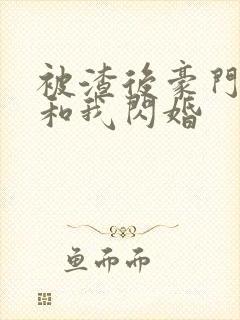 被渣後豪門
和我閃婚
鱼而而